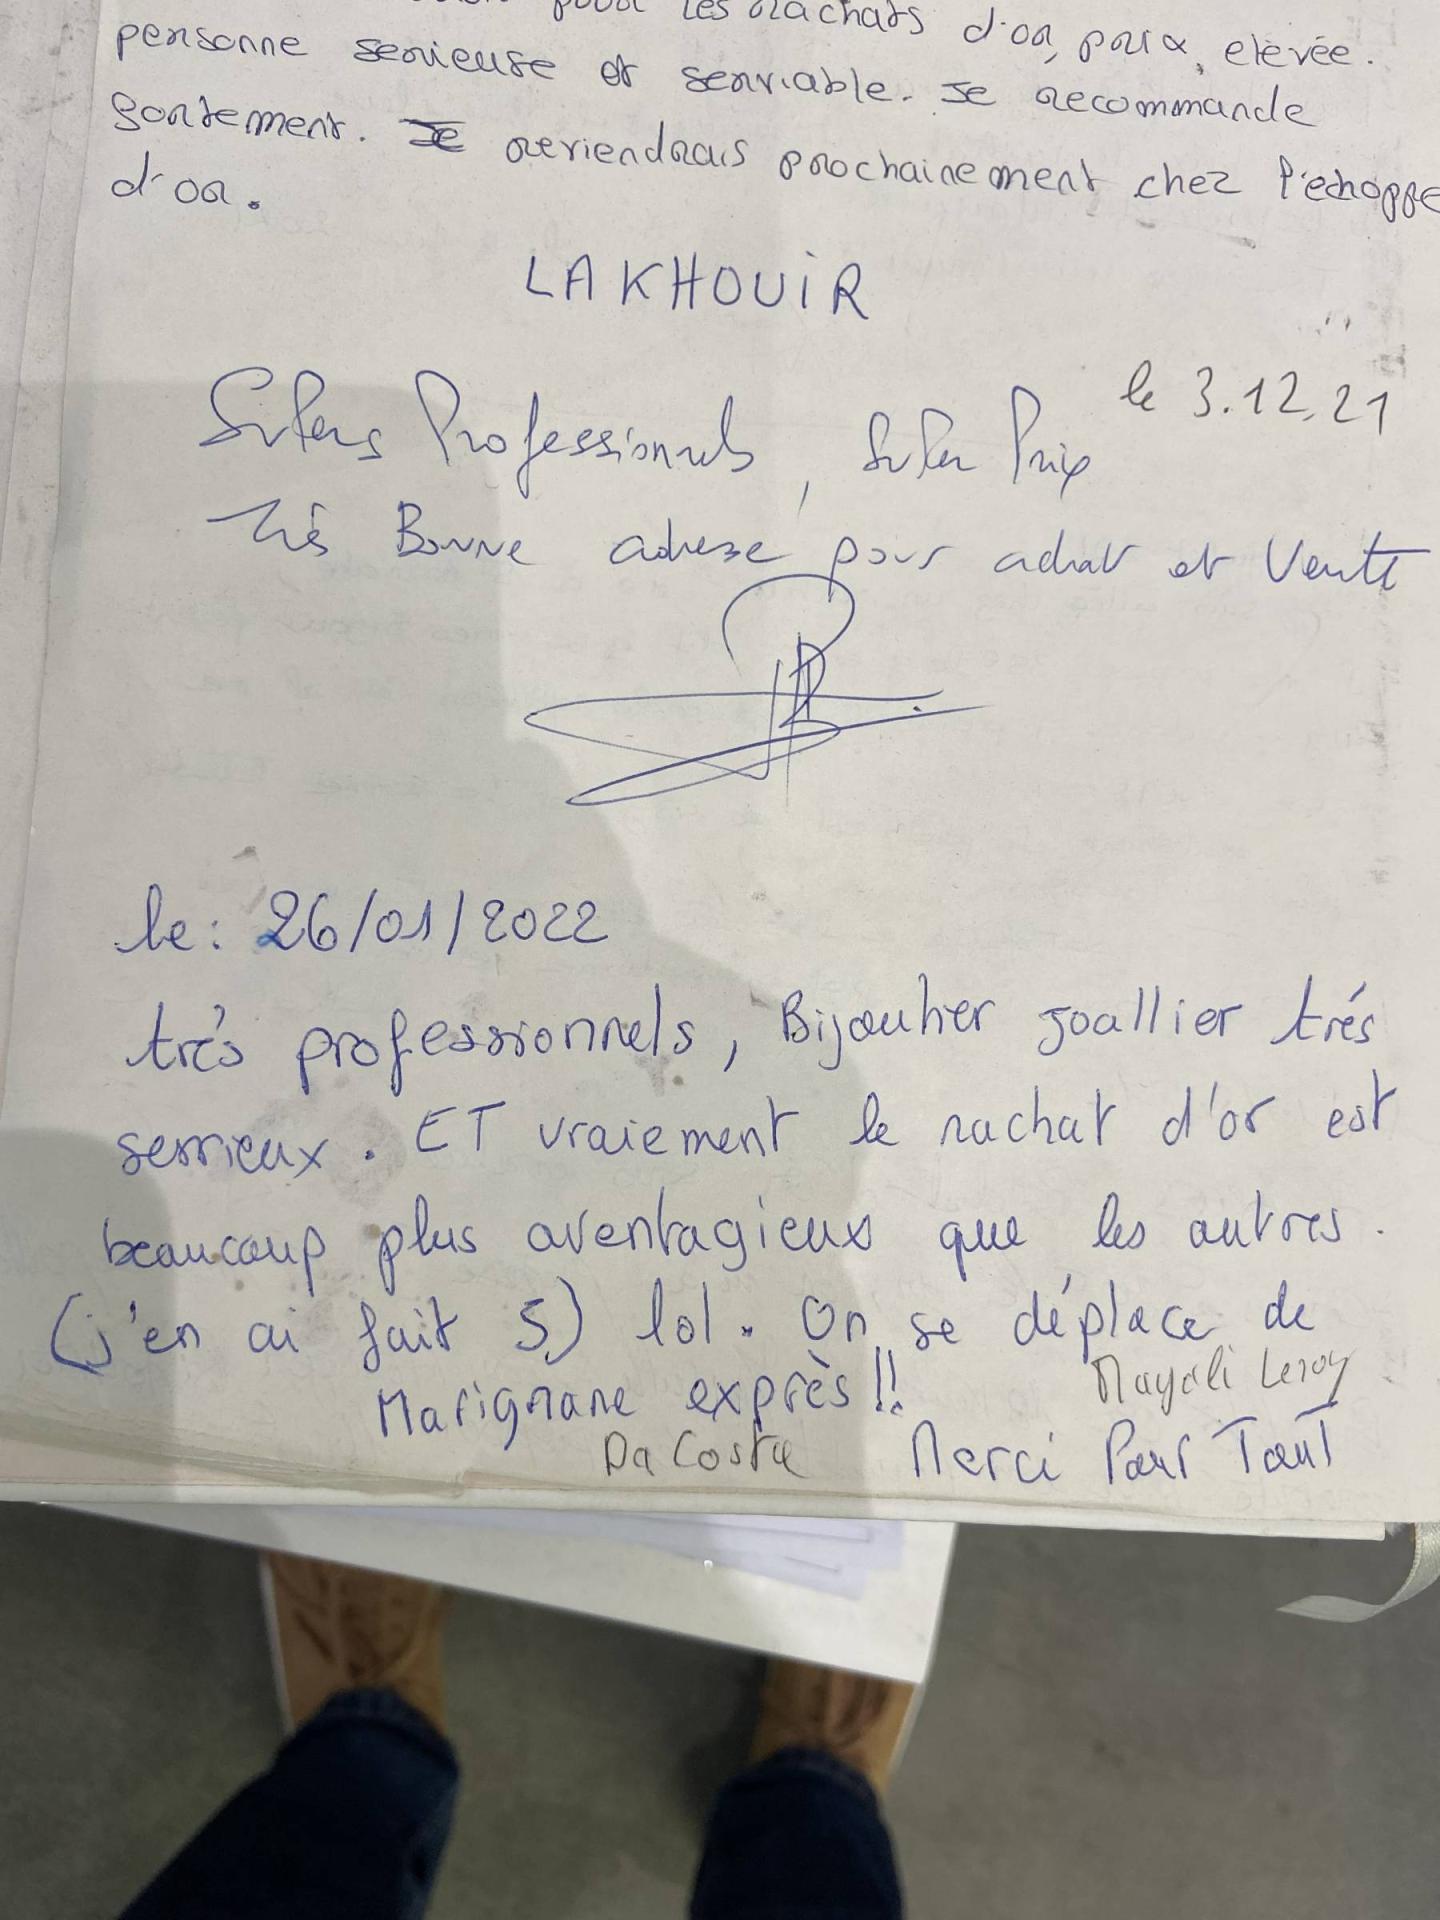 pour les rachats d'or, prix, elevée.
personne serieuse et serviable. Je recommande
fortement. Je reviendrais prochainement chez l'echoppe
d'or.
LAKHOUIR
le 3.12.21
Supers Professionnels, Super Prix
très Bonne adresse pour achat et Vente
le: 26/01/2022
trés professionnels, Bijoutier Joallier trés
serrieux. ET vraiement le rachat d'or est
beaucoup plus aventagieux que les autres.
(j'en ai fait 5) lol. On se déplace de
Marignane exprès!! Magali Leroy
Da Costa Merci Pour Tout